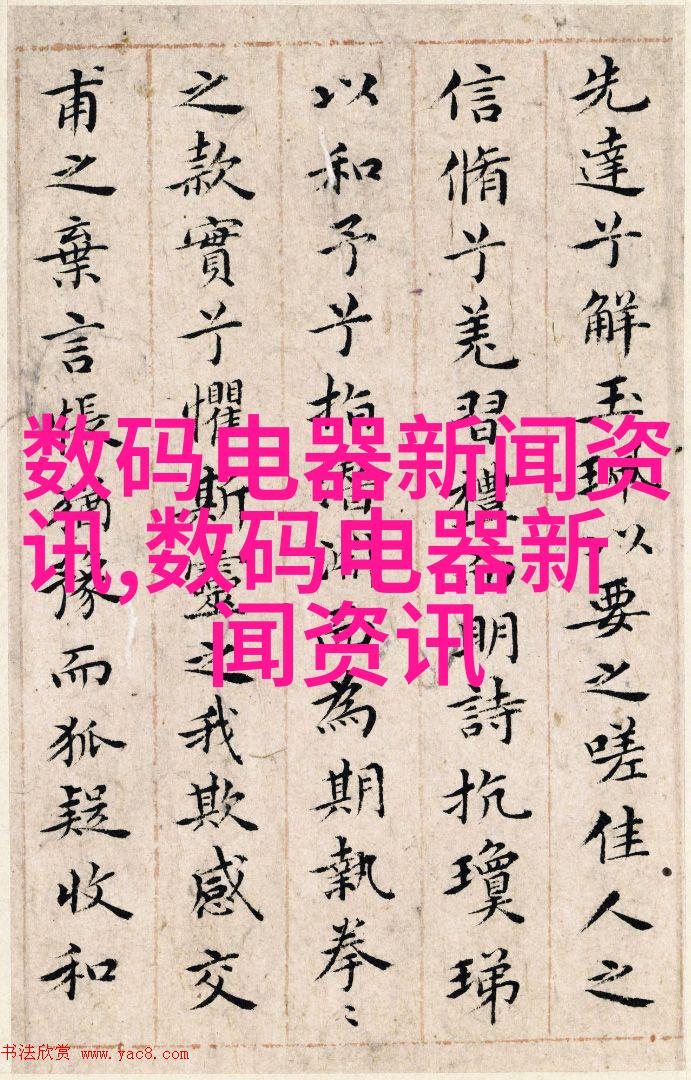 先達兮解玉珮以要之嗟佳人之
信脩兮羌習禮而明詩抗瓊珶
以和予兮指潛淵而為期執拳〻
之款實兮懼斯靈之我欺感交
甫之棄言悵猶豫而狐疑收和
数码电器新闻资
讯,数码电器新
闻资讯
书法欣赏 www.yac8.com